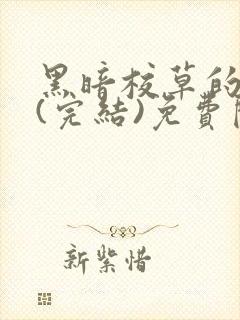 黑暗校草的
(完結)免費
新紫惜